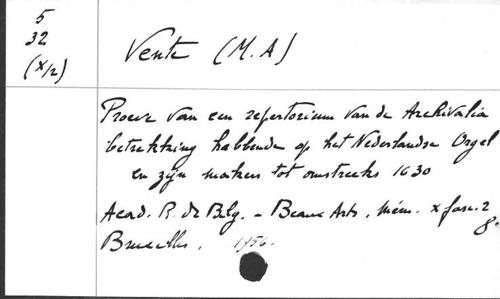 5
32
(X/2)
Vente (M.A)
Proeve van een repertorium van de Archivalia
betrekking hebbende op het Nederlandse Orgel
en zijn makers tot omstreeks 1630
Acad. R. de Belg. - Beaux Arts, Mém. X fasc. 2
8.
Bruxelles, 1956.